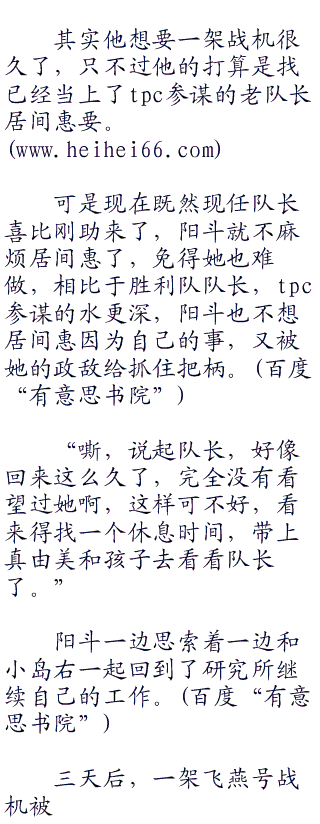 其实他想要一架战机很
久了，只不过他的打算是找
已经当上了tpc参谋的老队长
居间惠要。
(www.heihei66.com)
可是现在既然现任队长
喜比刚助来了，阳斗就不麻
烦居间惠了，免得她也难
做，相比于胜利队队长，tpc
参谋的水更深，阳斗也不想
居间惠因为自己的事，又被
她的政敌给抓住把柄。(百度
“有意思书院”)
“嘶，说起队长，好像
回来这么久了，完全没有看
望过她啊，这样可不好，看
来得找一个休息时间，带上
真由美和孩子去看看队长
了。”
阳斗一边思索着一边和
小岛右一起回到了研究所继
续自己的工作。(百度“有意
思书院”)
三天后，一架飞燕号战
机被